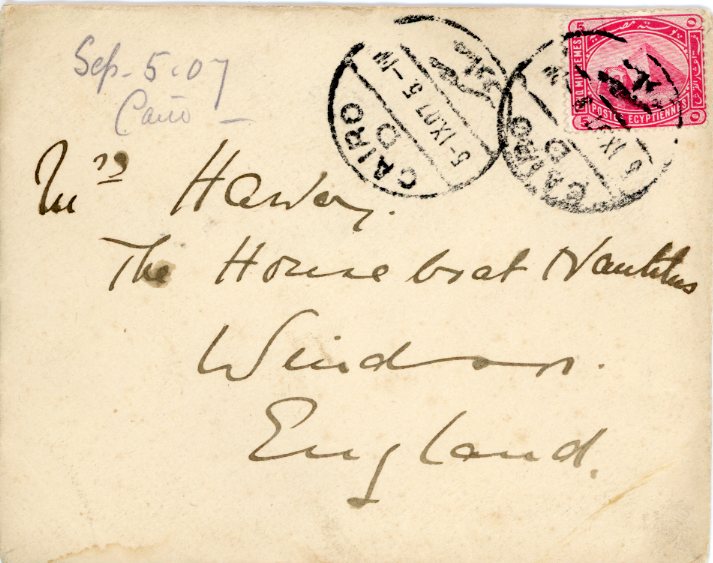 Sep. 5. 07
Cairo
CAIRO
D
5-IX.07 5-
CAIRO
D
5 IX.07
5
POSTES EGYPTIENNES
5
Mrs
The Houseboat Nautilus
Windsor.
England.